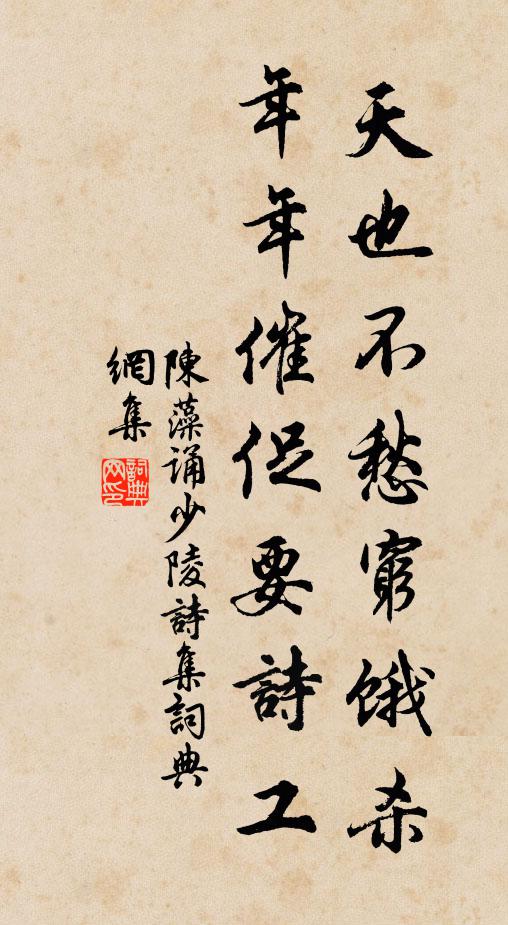 天也不愁窮餓杀
年年催促要詩工
陳藻诵少陵詩集詞典
網集
詞典网印